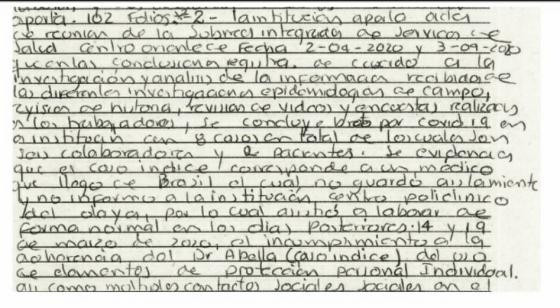 aporta. 102 Folios. # 2 - la institución aporta actas
de reunión de la Subred integrada de servicios de
salud centro oriente de Fecha 2-04-2020 y 3-04-2020
que en las conclusiones registra. de acuerdo a la
investigación y analisis de la información recibida de
las diferentes investigaciones epidemiologicas de campo,
revision de historia, revision de videos y encuestas realizadas
a los trabajadores, se concluye brote por covid.19 en
la institucion con 8 casos en total de los cuales son
seis colaboradores y 2 pacientes. se evidencia
que el caso indice corresponde a un medico
que llego de Brasil el cual no guardó aislamiente
y no informo a la institución centro policlinico
del olaya, por lo cual asistió a laborar de
forma normal en los dias posteriores. 14 y 19
de marzo de 2020, el incumplimiento a la
adherencia del Dr Abella (caso indice) del uso
de elementos de protección personal Individual.
asi como multiples contactos sociales sociales en el